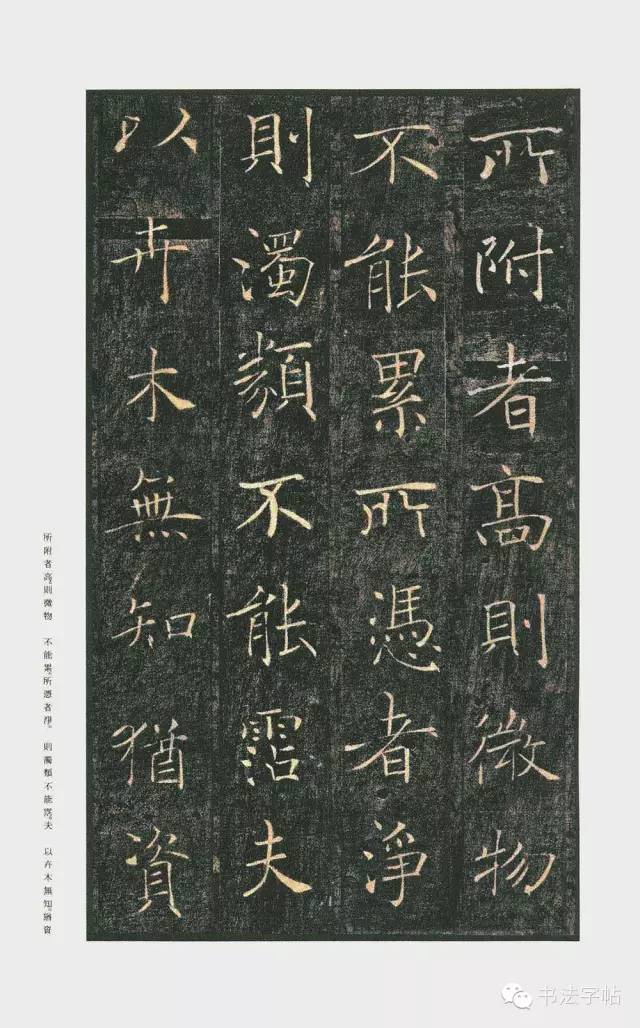 所附者高則微物
不能累所憑者淨
則濁類不能霑夫
以卉木無知猶資
所附者高。則微物 不能累。所憑者淨。 則濁類不能霑。夫 以卉木無知。猶資
书法字帖